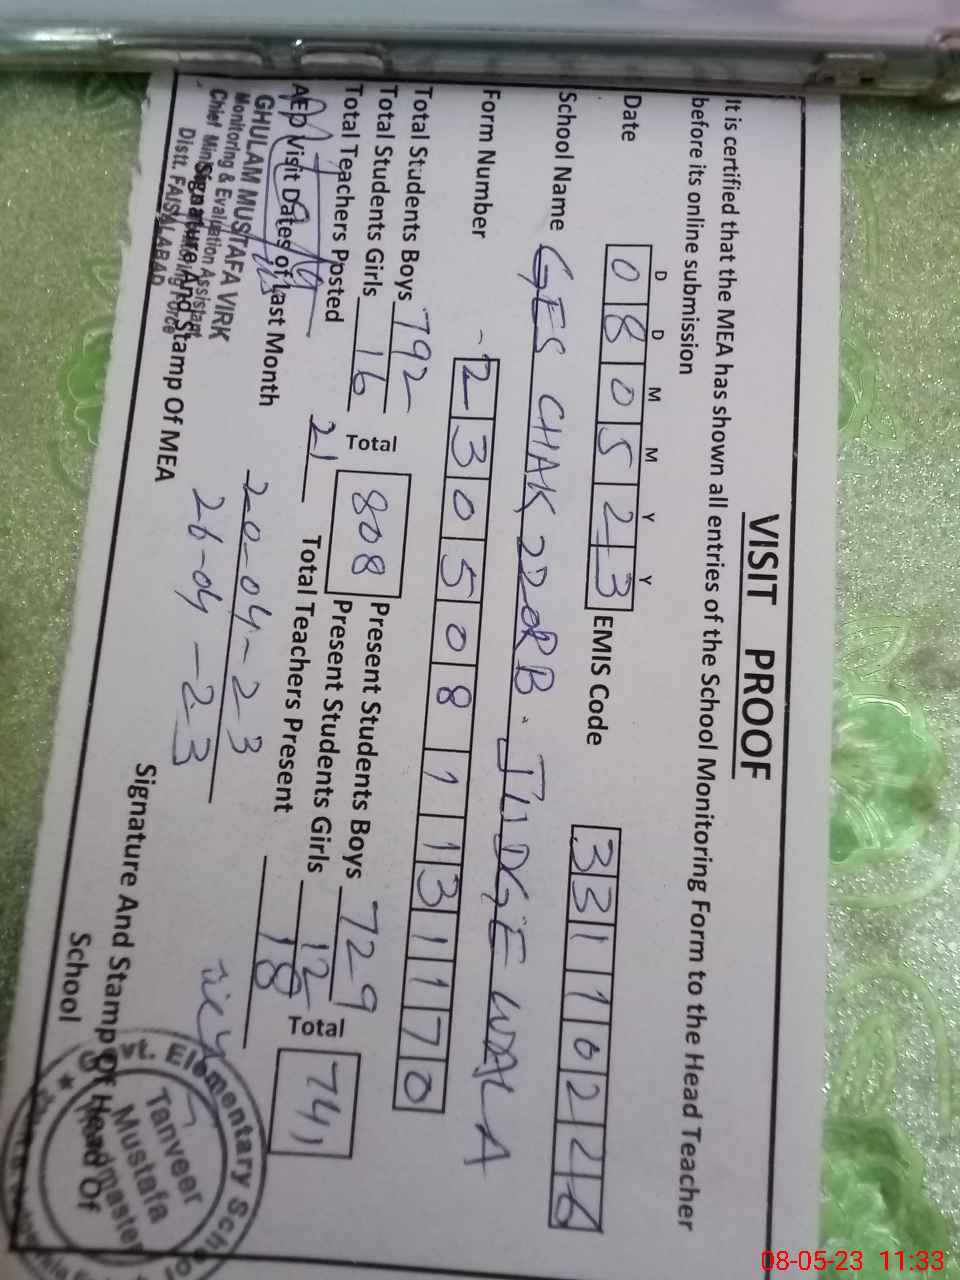 VISIT PROOF
It is certified that the MEA has shown all entries of the School Monitoring Form to the Head Teacher
before its online submission
D D M M Y Y
Date 0 8 0 5 2 3 EMIS Code 3 3 1 1 0 2 2 6
School Name GES CHAK 220RB. JUDGE WALA
Form Number 2 3 0 5 0 8 1 1 3 1 1 7 0
Total Students Boys 792 Present Students Boys 729
Total Students Girls 16 Total 808 Present Students Girls 12 Total 741
Total Teachers Posted 21 Total Teachers Present 18
AEO Visit Dates of Last Month 20-04-23
26-04-23
GHULAM MUSTAFA VIRK
Monitoring & Evaluation Assistant
Chief Monitoring Force
Distt. FAISALABAD
Signature And Stamp Of MEA
Signature And Stamp Of Head Of
School
Govt. Elementary School
Tanveer
Mustafa
Headmaster
08-05-23 11:33